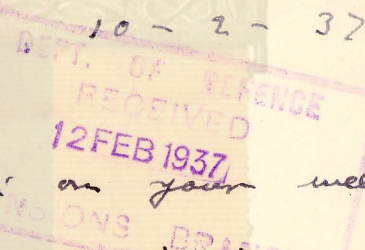 10 - 2 - 37
DEPT. OF DEFENCE
RECEIVED
12 FEB 1937
on your